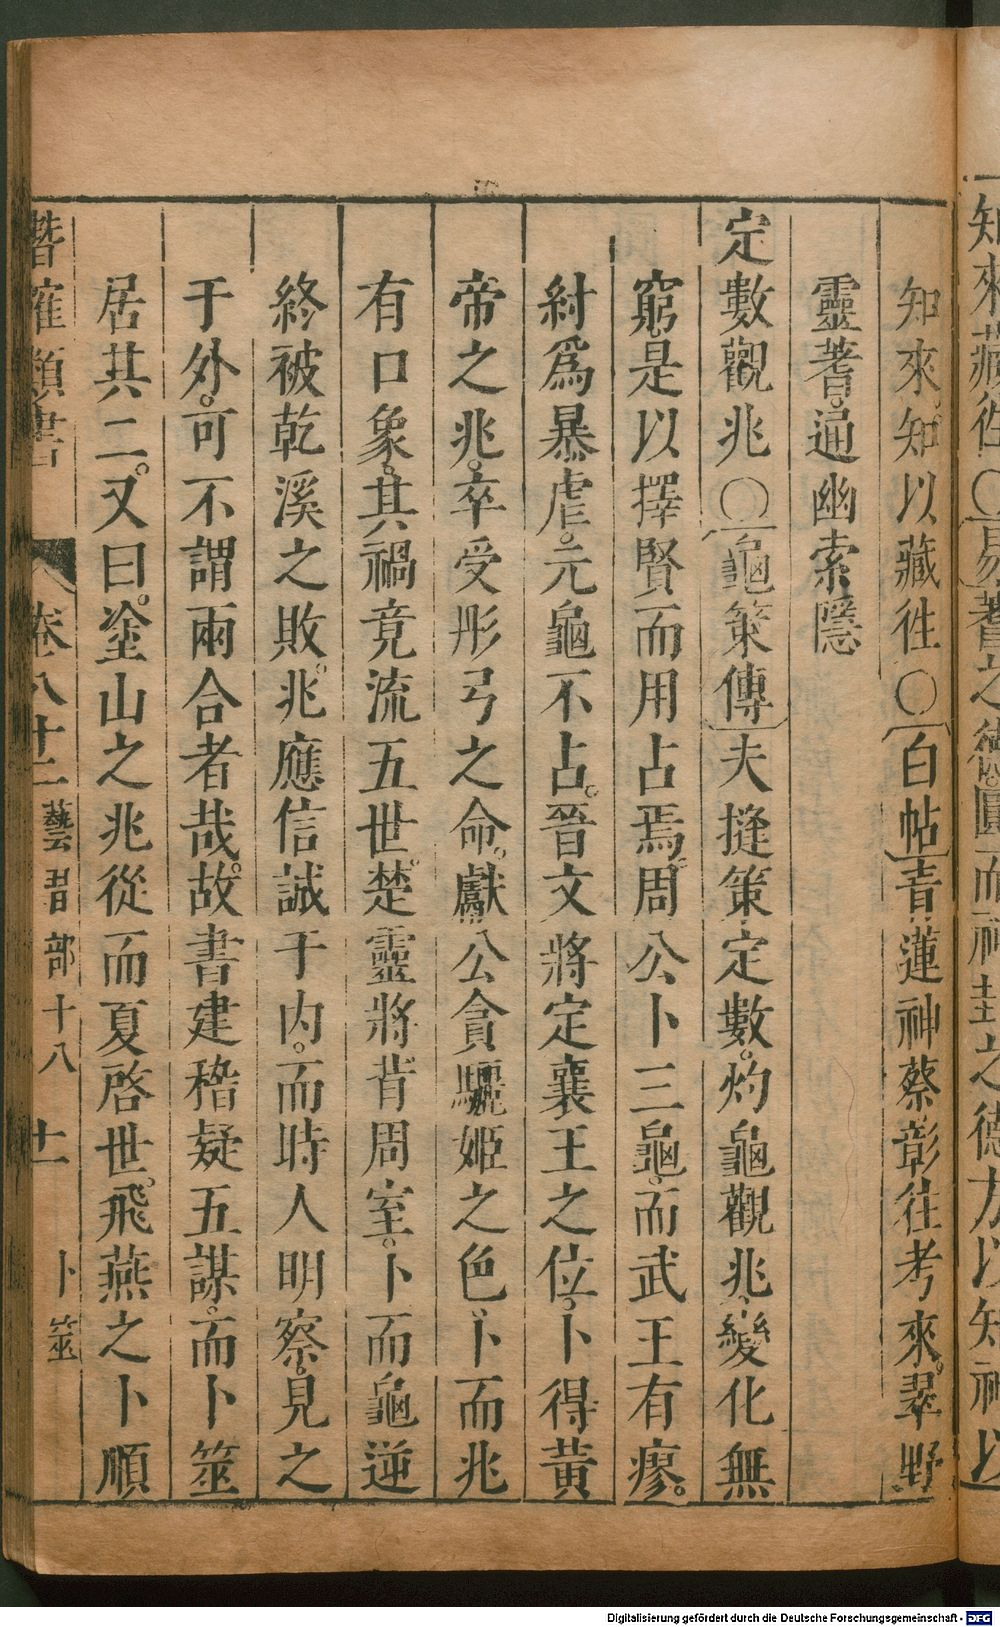 知來藏徃○易蓍之德圓而神卦之德方以知神以
知來。知以藏徃○白帖青蓮神蔡彰往考來。翠野
靈蓍。通幽索隱
定數觀兆○龜策傳夫摓策定數。灼龜觀兆變化無
窮。是以擇賢而用占焉。周公卜三龜。而武王有瘳。
紂爲暴虐。元龜不占。晉文將定襄王之位。卜得黃
帝之兆。卒受彤弓之命。獻公貪驪姬之色。卜而兆
有口象。其禍竟流五世。楚靈將背周室。卜而龜逆
終被乾溪之敗。兆應信誠于内。而時人明察。見之
于外。可不謂兩合者哉。故書建稽疑五謀。而卜筮
居其二。又曰。塗山之兆從而夏啓世。飛燕之卜順
潛確類書 卷八十二 藝習部十八 十一 卜筮
Digitalisierung gefördert durch die Deutsche Forschungsgemeinschaft - DFG